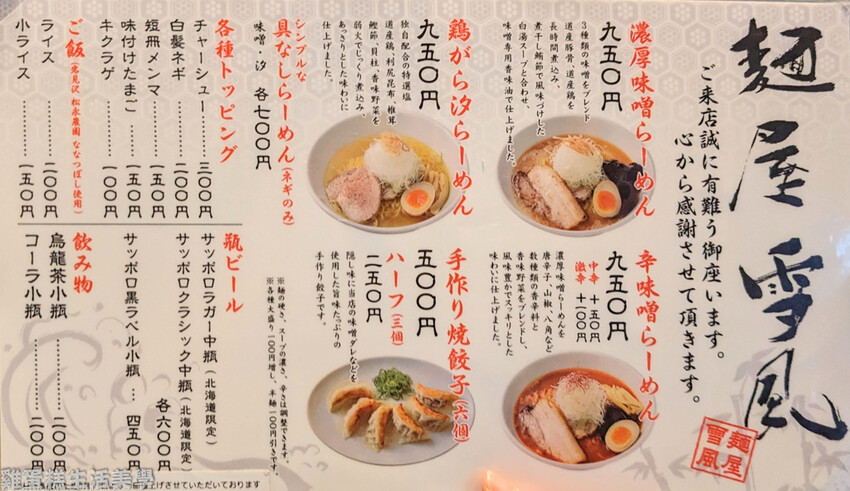 麺屋雪風
ご来店誠に有難う御座います。
心から感謝させて頂きます。
麺屋
雪風
濃厚味噌らーめん
九五〇円
3種類の味噌をブレンド
道産豚骨、道産鶏を
長時間煮込み、
煮干し鯖節で風味づけした
白湯スープと合わせ、
味噌専用香味油で仕上げました。
辛味噌らーめん
中辛 +五〇円
激辛 +一〇〇円
九五〇円
濃厚味噌らーめんを
唐辛子、山椒、八角など
数種類の香辛料と
香味野菜をブレンドし、
風味豊かでスッキリとした
味わいに仕上げました。
鶏がら汐らーめん
九五〇円
独自配合の特選塩
道産鶏、利尻昆布、椎茸
鰹節、貝柱、香味野菜を
弱火でじっくり煮込み、
あっさりとした味わいに
仕上げました。
手作り焼餃子(六個)
五〇〇円
ハーフ(三個)
二五〇円
隠し味に当店の味噌ダレなどを
使用した旨味たっぷりの
手作り餃子です。
シンプルな
具なしらーめん(ネギのみ)
味噌・汐 各七〇〇円
※麺の硬さ、スープの濃さ、辛さは調整できます。
※各種大盛り一〇〇円増し、半麺一〇〇円引きです。
各種トッピング
チャーシュー……三〇〇円
白髪ネギ……二〇〇円
短冊メンマ……一五〇円
味付けたまご……一五〇円
キクラゲ……一〇〇円
ご飯(鶯見沢 松永農園 ななつぼし使用)
ライス……二〇〇円
小ライス……一五〇円
瓶ビール
サッポロラガー中瓶(北海道限定)
サッポロクラシック中瓶(北海道限定)
各六〇〇円
サッポロ黒ラベル小瓶…四五〇円
飲み物
烏龍茶小瓶……二〇〇円
コーラ小瓶……二〇〇円
上げさせていただいております
雞蛋糕生活美學